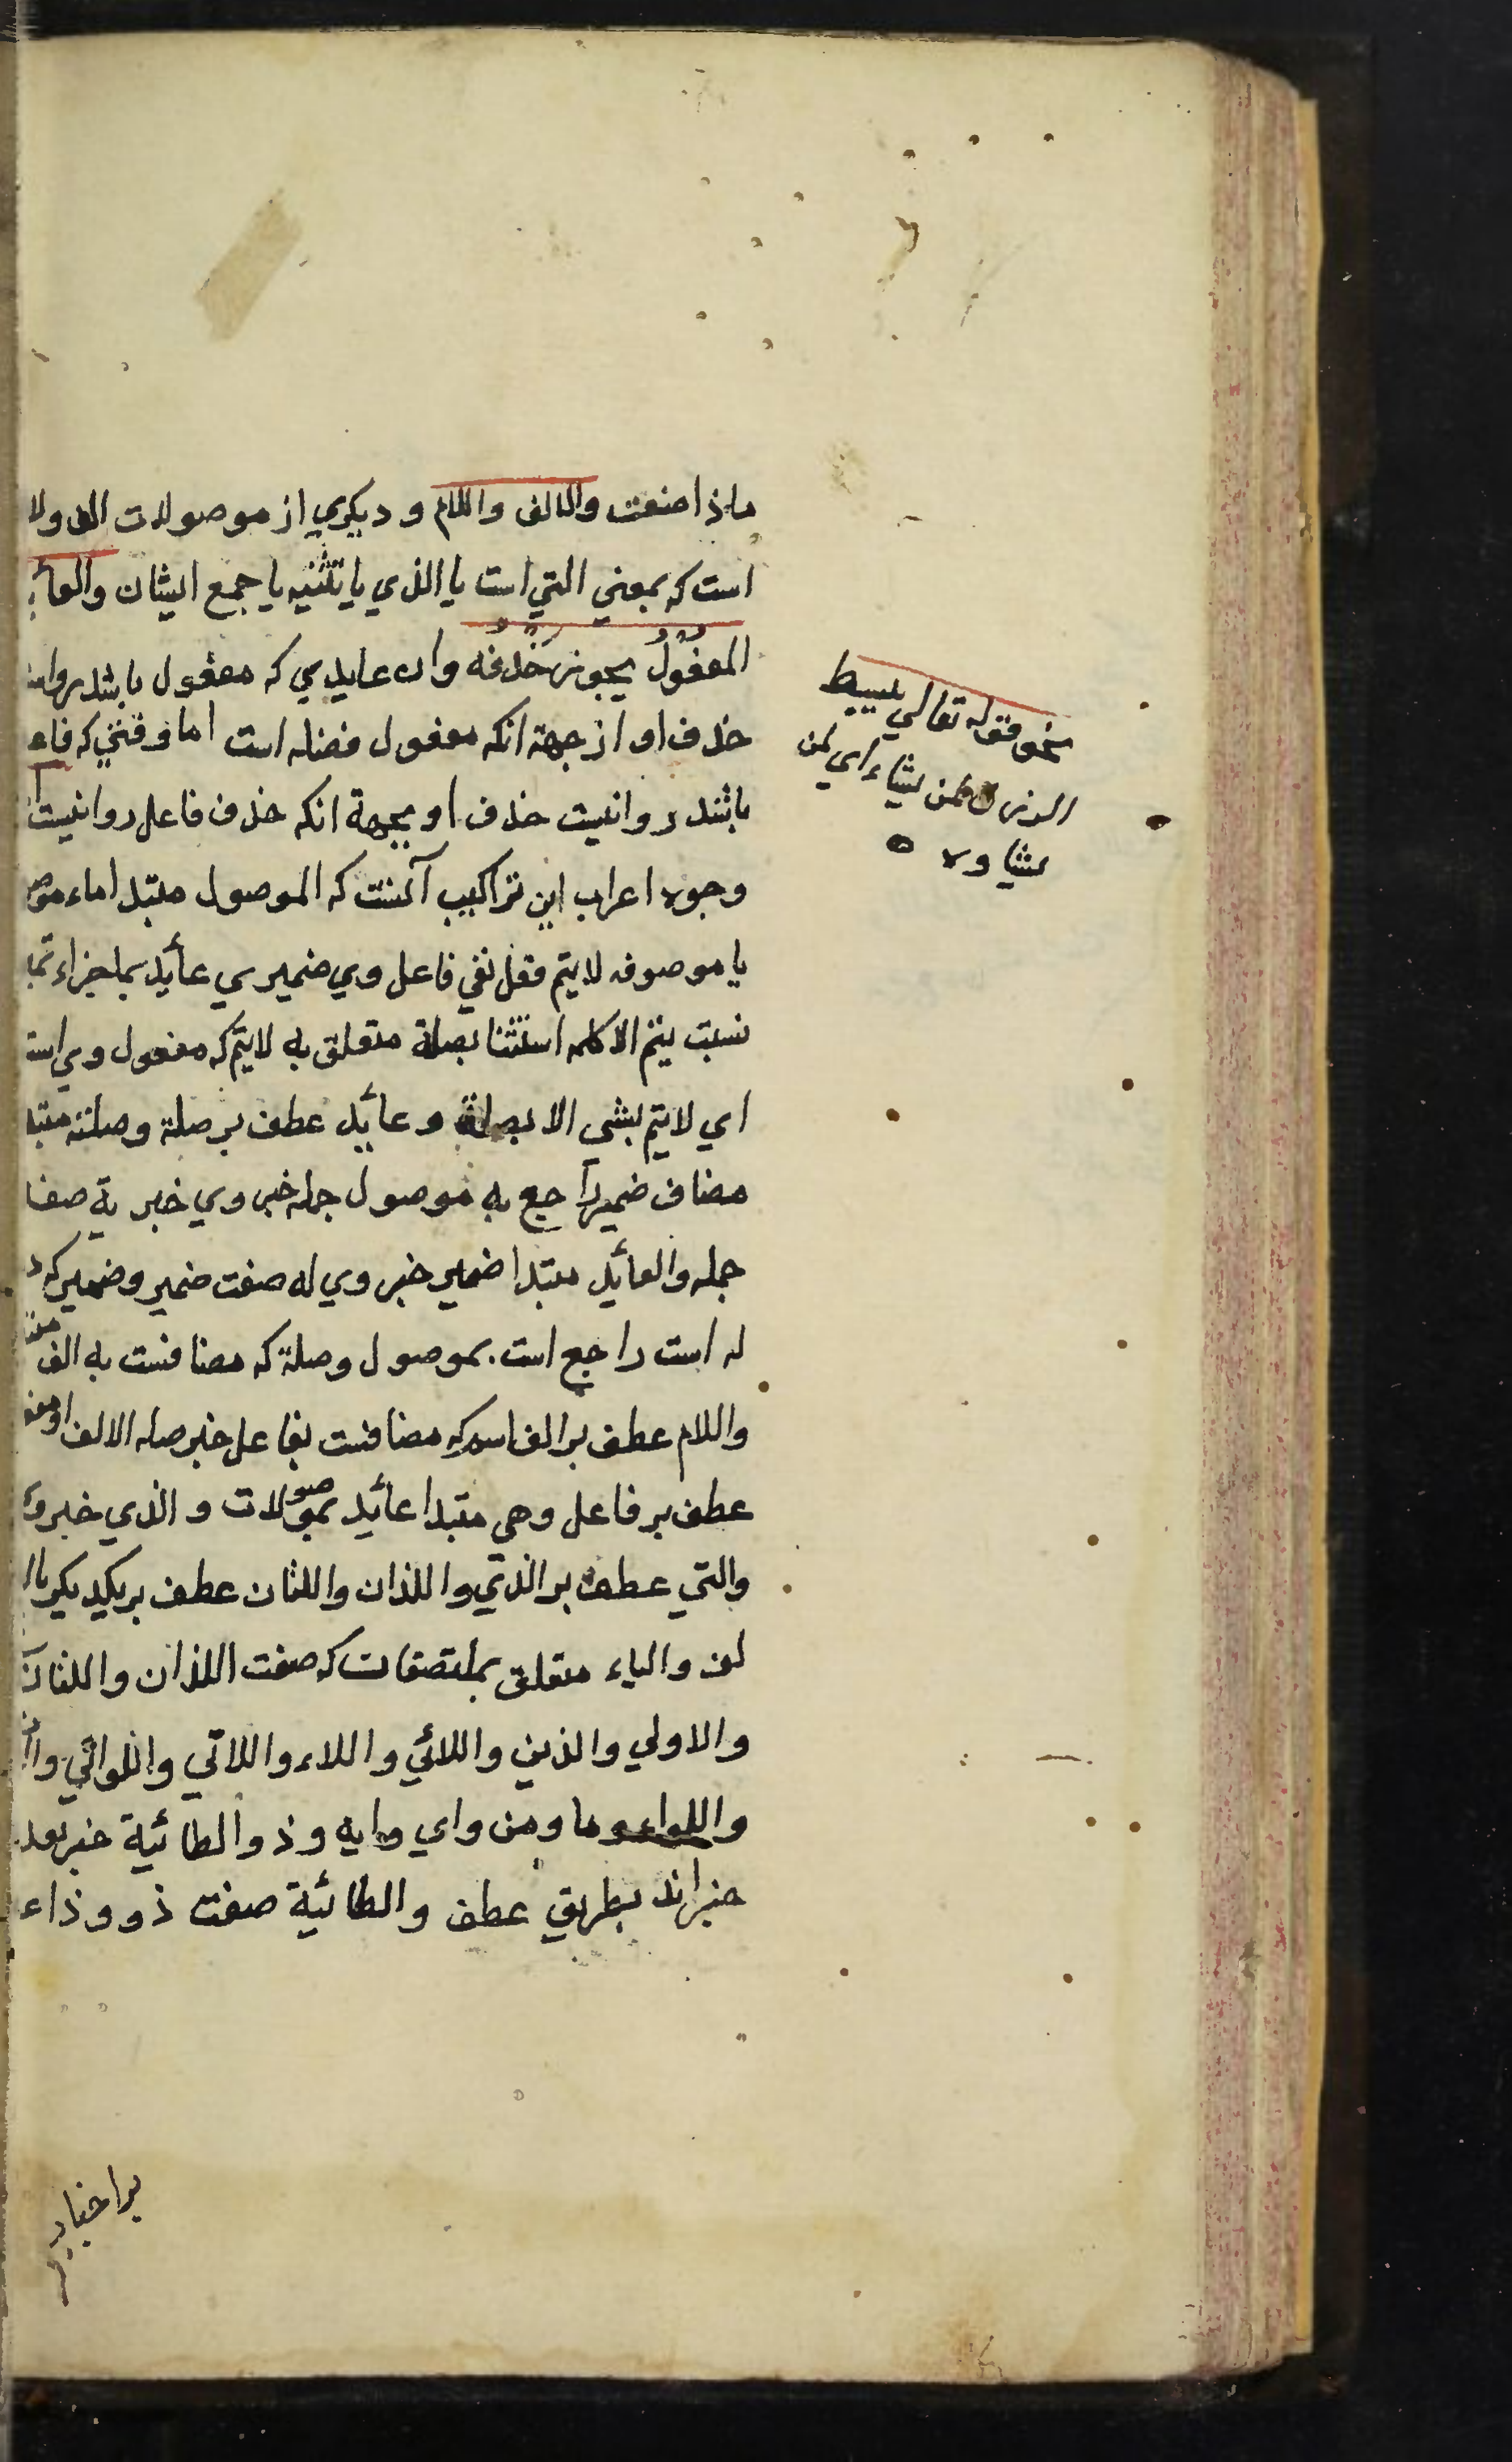 ماذا صنعت والالف واللام و ديكري از موصولات الف ولا
است كه بمعني التي است يا الذي يا تثنيه يا جمع ايشان والعائ
المفعُولُ يجوز حَذفُه وان عايدي كه مفعول باشد روا
حذف او از جهة انكه مفعول فضله است اما وقتي كه فاء
باشد روانيست حذف او بجهة انكه حذف فاعل روانيست
وجوه اعراب اين تراكيب آنست كه الموصول مبتدا ماء موص
يا موصوفه لا يتم فعل نفي فاعل وي ضميري عائد بما جزاء تما
نسبت يتم الا كلمه استثنا بصلة متعلق به لايتم كه مفعول وي است
اي لا يتم بشي الا بصلة و عائد عطف بر صلة وصلته مبتد
مضاف ضمير راجع به موصول جمله خبر وي خبرية صفا
جمله والعائد مبتدا ضمير خبر وي له صفت ضمير وضمير كه د
له است راجع است بموصول وصلة كه مضافست به الف
واللام عطف بر الف اسم كه مضافست بفاعل خبر صله الالف او مفع
عطف بر فاعل وهي مبتدا عائد بموصولات و الذي خبر و
والتي عطف بر الذي واللذان واللتان عطف بر يكديكر بال
لف والياء متعلق بملتصقات كه صفت اللذان واللتان
والاولي والذين واللائي و اللاء واللاتي واللواتي وا
واللواء وما ومن واي وايه وذو الطائية خبر بعد
خبراند بطريق عطف والطائية صفت ذو وذاء
نحو قوله تعالي يبسط
الرزق لمن يشاء اي لمن
يشاوه
بر اخبار